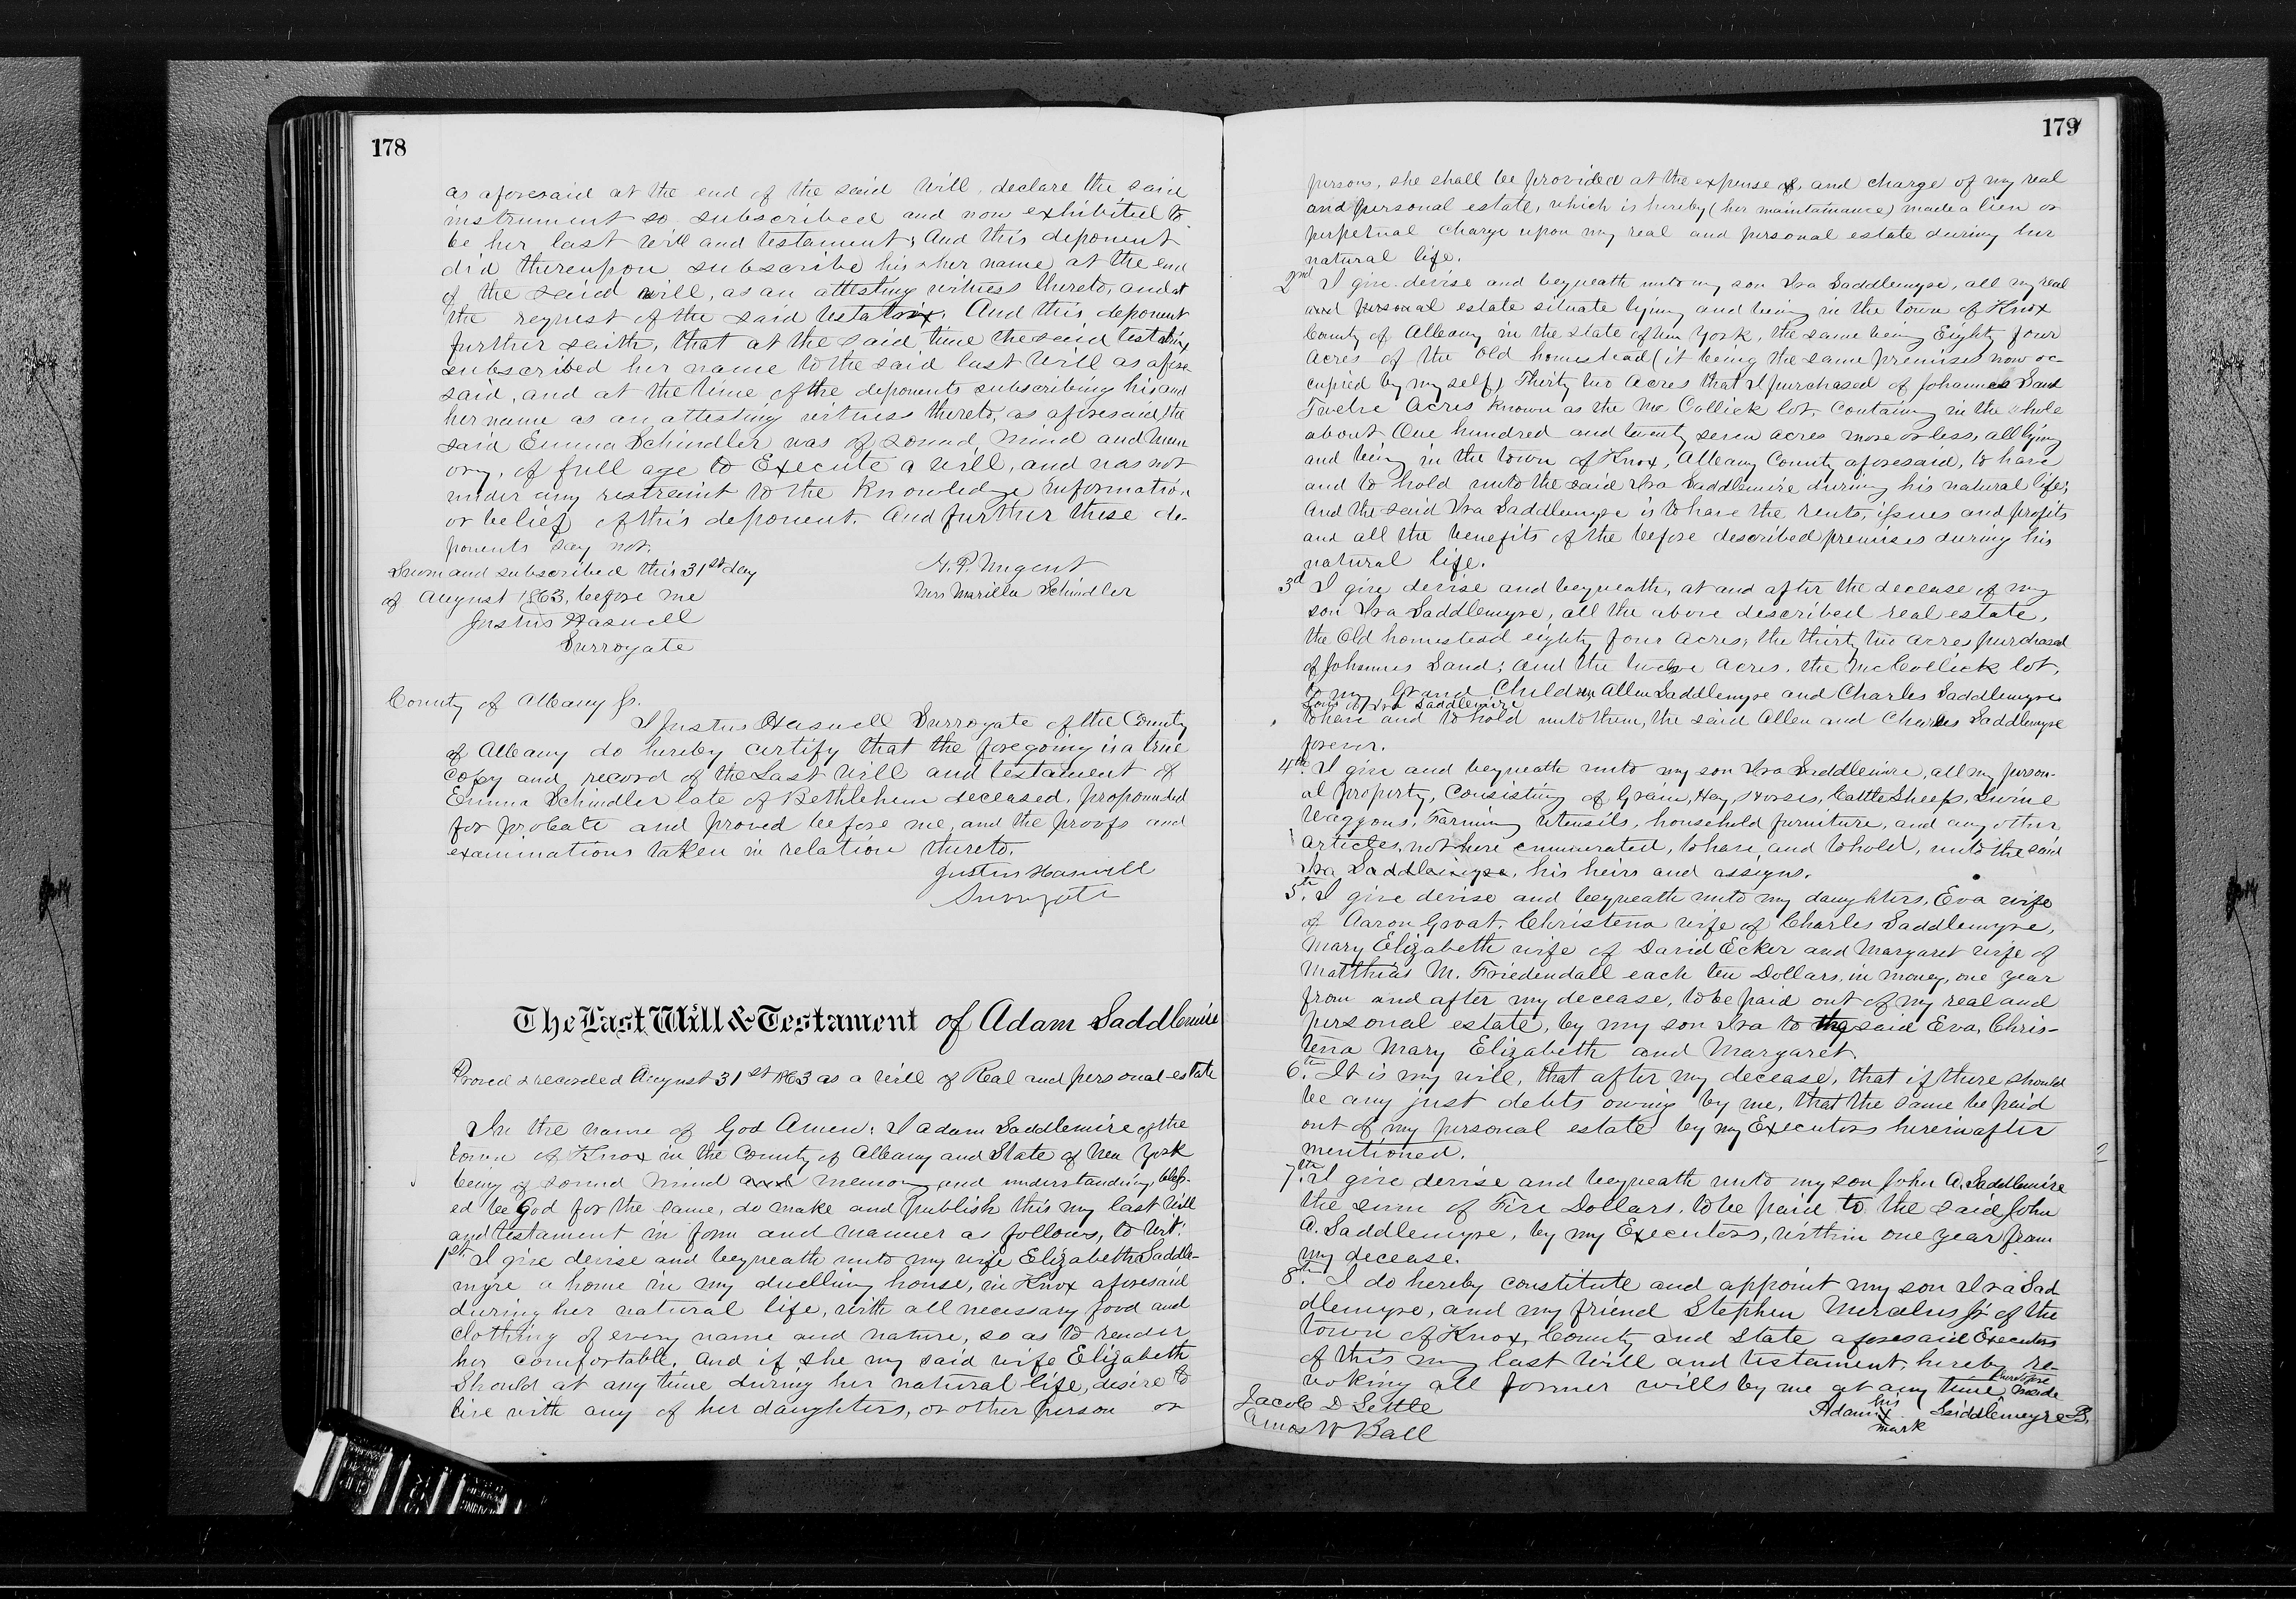 178
as aforesaid at the end of the said Will, declare the said
instrument so subscribed and now exhibited to
be her last Will and testament; And this deponent
did thereupon subscribe his & her name at the end
of the said will, as an attesting witness thereto, and at
the request of the said testatrix. And this deponent
further saith, that at the said time the said testatrix
subscribed her name to the said last Will as afore
said, and at the time of the deponents subscribing his and
her name as an attesting witness thereto, as aforesaid, the
said Emma Schindler was of sound mind and mem
ory, of full age to Execute a will, and was not
under any restraint to the knowledge information
or belief of this deponent. And further these de-
ponents say not.
Sworn and subscribed this 31st day
of August 1863, before me
Justus Haswell
Surrogate
H. P. Nugent
Mrs Marilla Schindler
County of Albany Ss.
I Justus Haswell Surrogate of the County
of Albany do hereby certify that the foregoing is a true
Copy and record of the Last Will and testament of
Emma Schindler late of Bethlehem deceased, propounded
for probate and proved before me, and the proofs and
examinations taken in relation thereto.
Justus Haswell
Surrogate
The Last Will & Testament of Adam Saddlemire
Proved & recorded August 31st 1863 as a Will of Real and personal estate
In the name of God Amen: I Adam Saddlemire of the
town of Knox in the County of Albany and State of New York
being of sound mind and memory and understanding, bless-
ed be God for the same, do make and publish this my last Will
and testament in form and manner as follows, to wit:
1st. I give devise and bequeath unto my wife Elizabeth Saddle-
myre a home in my dwelling house, in Knox aforesaid
during her natural life, with all necessary food and
clothing of every name and nature, so as to render
her comfortable. And if she my said wife Elizabeth
Should at any time during her natural life, desire to
live with any of her daughters, or other person or
179
persons, she shall be provided at the expense &, and charge of my real
and personal estate, which is hereby (her maintainance) made a lien or
perpetual charge upon my real and personal estate during her
natural life.
2nd I give devise and bequeath unto my son Ira Saddlemyre, all my real
and personal estate situate lying and being in the town of Knox
County of Albany in the State of New York, the same being Eighty four
Acres of the Old homestead (it being the same premises now oc-
cupied by my self) Thirty two Acres that I purchased of Johannes Sand
Twelve Acres known as the Mc Collick lot, Containing in the whole
about One hundred and twenty seven acres more or less, all lying
and being in the town of Knox, Albany County aforesaid, to have
and to hold unto the said Ira Saddlemire during his natural life;
And the said Ira Saddlemyre is to have the rents, issues and profits
and all the benefits of the before described premises during his
natural life.
3d I give devise and bequeath, at and after the decease of my
son Ira Saddlemyre, all the above described real estate,
the Old homestead eighty four Acres; the thirty two acres purchased
of Johannes Sand; and the twelve acres, the McCollick lot,
to my Grand Children Allen Saddlemyre and Charles Saddlemyre
Sons of Ira Saddlemire
to have and to hold unto them, the said Allen and Charles Saddlemyre
forever.
4th. I give and bequeath unto my son Ira Saddlemire, all my person-
al property, Consisting of Grain, Hay, Horses, Cattle Sheep, Swine
Waggons, Farming utensils, household furniture, and any other
articles, not here enumerated, to have, and to hold, unto the said
Ira Saddlemyre, his heirs and assigns.
5th. I give devise and bequeath unto my daughters, Eva wife
of Aaron Groat, Christena wife of Charles Saddlemyre,
Mary Elizabeth wife of David Ecker and Margaret wife of
Matthias M. Friedendall each ten Dollars, in money, one year
from and after my decease, to be paid out of my real and
personal estate, by my son Ira to the said Eva, Chris-
tena Mary Elizabeth and Margaret.
6th. It is my will, that after my decease, that if there should
be any just debts owing by me, that the same be paid
out of my personal estate by my Executors hereinafter
mentioned.
7th. I give devise and bequeath unto my son John A. Saddlemire
the sum of Five Dollars, to be paid to the said John
A. Saddlemyre, by my Executors, within one year from
my decease.
8th. I do hereby constitute and appoint my son Ira Sad
dlemyre, and my friend Stephen Merselus Jr of the
town of Knox, County and State aforesaid Executors
of this my last Will and testament, hereby re-
heretofore
voking all former wills by me at any time, made
Jacob D Settle
Amos W Ball
his
Adam X Saddlemyre
mark